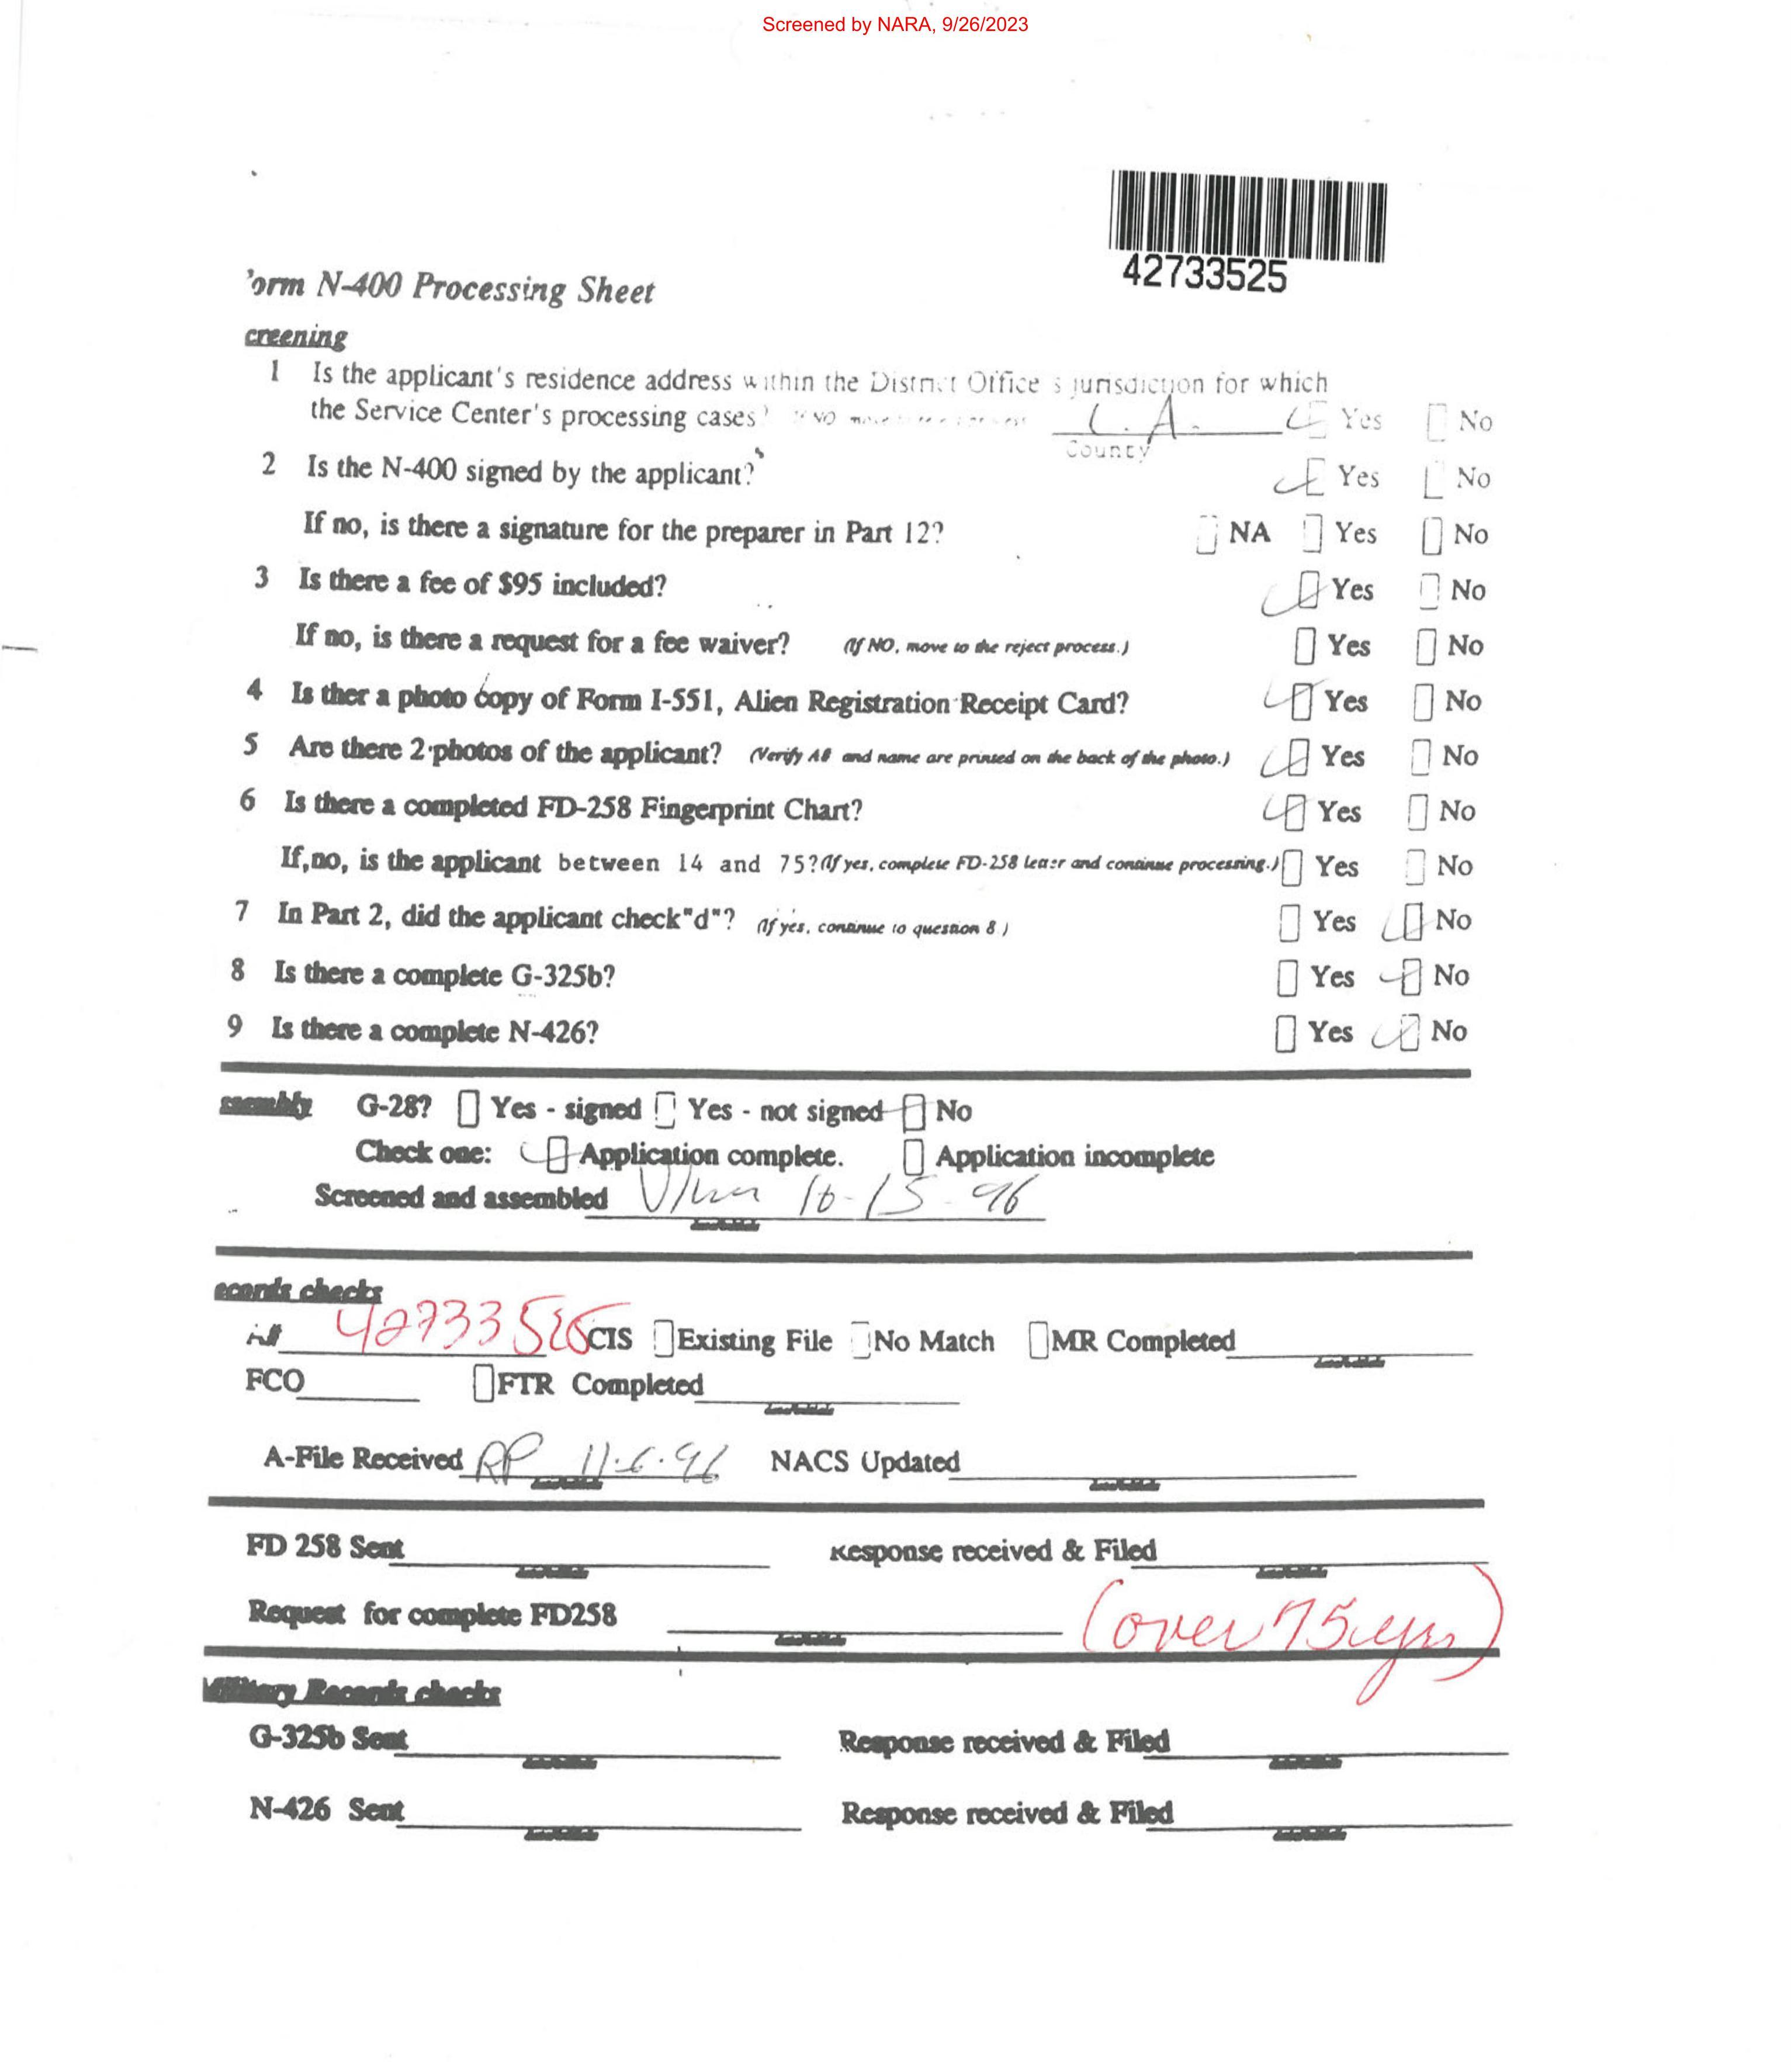 Screened by NARA, 9/26/2023
42733525
'orm N-400 Processing Sheet
creening
1 Is the applicant's residence address within the District Office s jurisdiction for which
the Service Center's processing cases? If NO move L.A. Yes No
County
2 Is the N-400 signed by the applicant? Yes No
If no, is there a signature for the preparer in Part 12? NA Yes No
3 Is there a fee of $95 included? Yes No
If no, is there a request for a fee waiver? (If NO, move to the reject process.) Yes No
4 Is ther a photo copy of Form I-551, Alien Registration Receipt Card? Yes No
5 Are there 2 photos of the applicant? (Verify A# and name are printed on the back of the photo.) Yes No
6 Is there a completed FD-258 Fingerprint Chart? Yes No
If,no, is the applicant between 14 and 75?(If yes, complete FD-258 letter and continue processing.) Yes No
7 In Part 2, did the applicant check"d"? (If yes, continue to question 8 ) Yes No
8 Is there a complete G-325b? Yes No
9 Is there a complete N-426? Yes No
ssembly G-28? Yes - signed Yes - not signed No
Check one: Application complete. Application incomplete
Screened and assembled 10-15-96
ecords checks
A# 42733525 CIS Existing File No Match MR Completed
FCO FTR Completed
A-File Received RP 11.6.96 NACS Updated
FD 258 Sent Response received & Filed
Request for complete FD258 (over 75 yrs)
Military Records checks
G-325b Sent Response received & Filed
N-426 Sent Response received & Filed